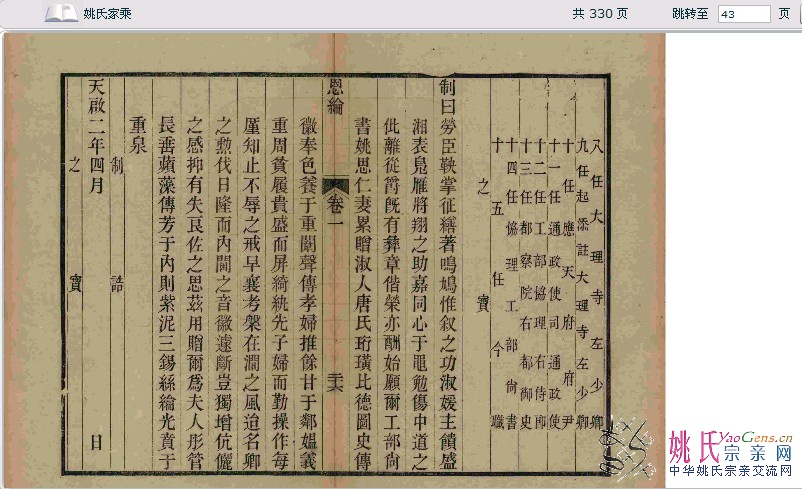 姚氏家乘
共 330 页
跳转至 43 页
八任大理寺左少卿
九任起添註大理寺左少卿
十任應天府府尹
十一任通政使司通政使
十二任工部協理右侍郎
十三任都察院右都御史
十四任協理工部尚書
十五任今職
之寶
制曰勞臣鞅掌征繕著鳴鳩惟叙之功淑媛主饋盛
湘表鳧雁將翔之助嘉同心于黽勉傷中道之
仳離從爵旣有彝章偕榮亦酬始願爾工部尚
書姚思仁妻累贈淑人唐氏珩璜比德圖史傳
恩綸
卷一
二十六
徽奉色養于重闈聲傳孝婦推餘甘于鄰媼義
重周貧履貴盛而屏綺紈先子婦而勤操作每
厪知止不辱之戒早襄考槃在澗之風迨名卿
之勲伐日隆而內閫之音徽遽斷豈獨增伉儷
之感抑有失良佐之思茲用贈爾爲夫人彤管
長垂蘋藻傳芳于內則紫泥三錫絲綸光賁于
重泉
制誥
天啟二年四月 日
之寶
姚氏YaoGens.cn
宗亲网
中华姚氏宗亲交流网